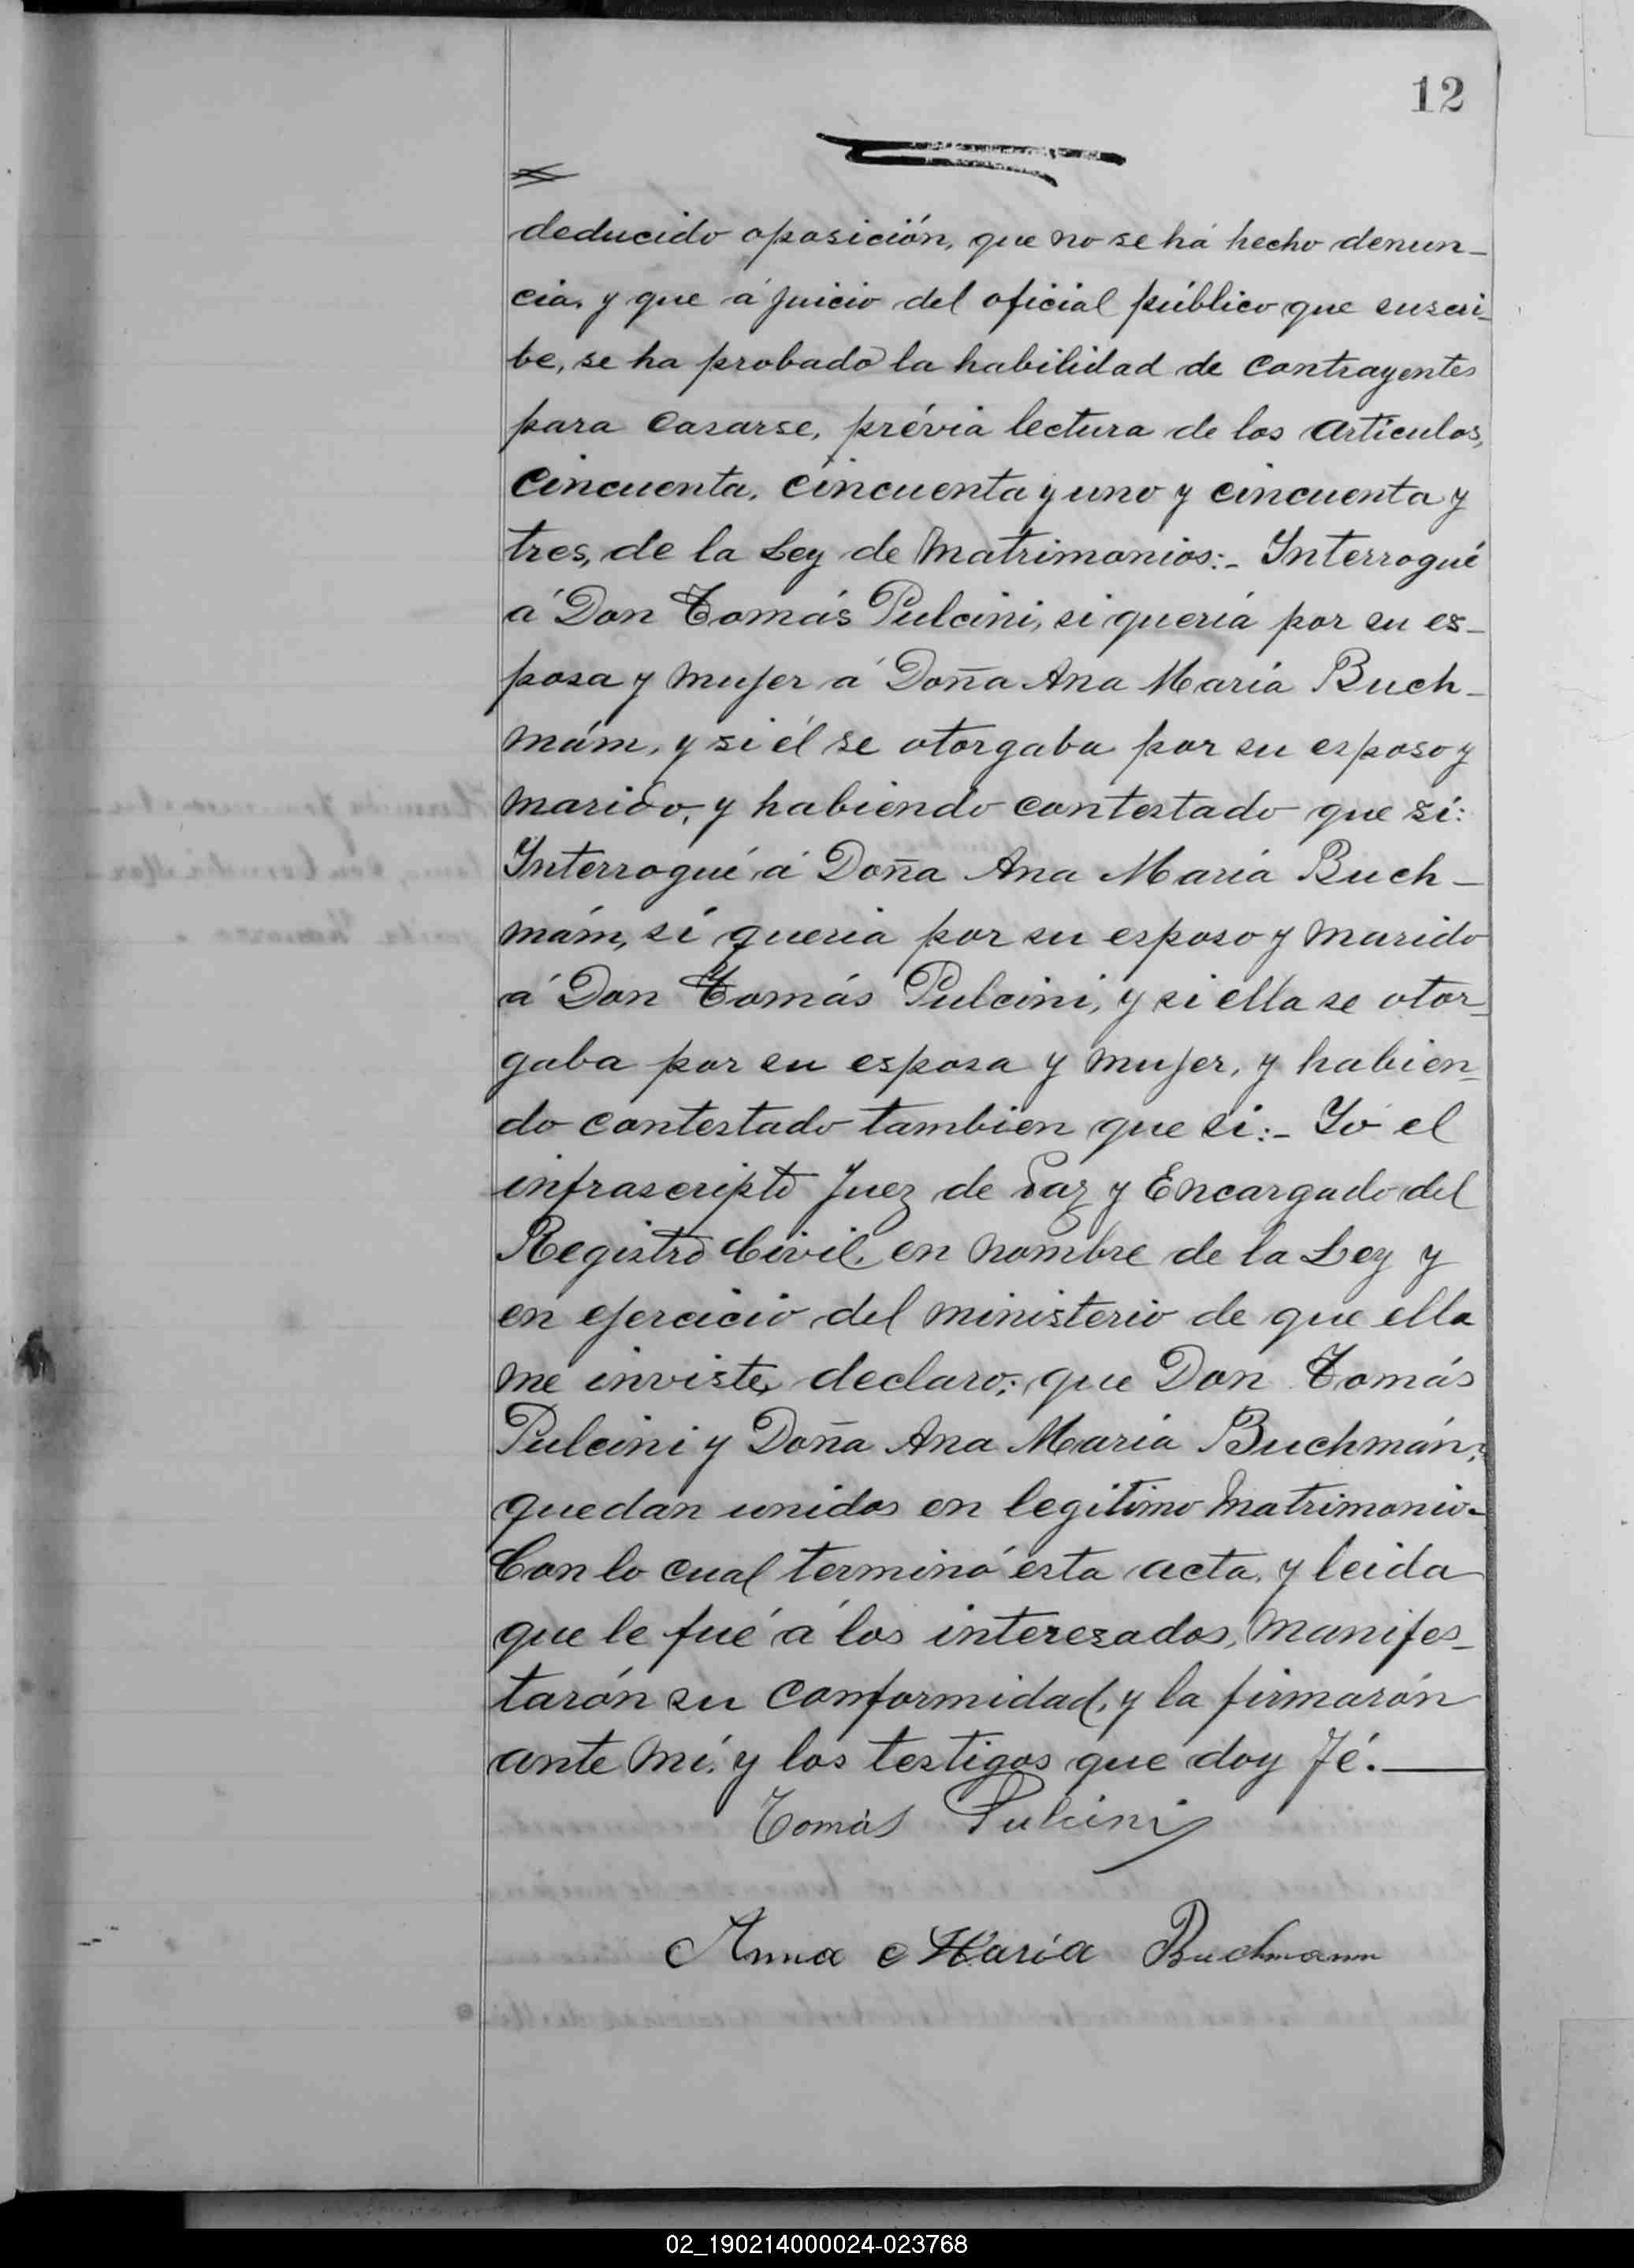 12
deducido oposición, que no se há hecho denun-
cia, y que á juicio del oficial público que suscri-
be, se ha probado la habilidad de contrayentes
para casarse, prévia lectura de los articulos,
cincuenta, cincuenta y uno y cincuenta y
tres, de la Ley de Matrimonios:- Interrogué
á Don Tomás Pulcini, si quería por su es-
posa y mujer á Doña Ana María Buch-
mám, y si él se otorgaba por su esposo y
marido, y habiendo contestado que sí:
Interrogué á Doña Ana María Buch-
mám, sí queria por su esposo y marido
á Don Tomás Pulcini, y si ella se otor-
gaba por su esposa y mujer, y habien-
do contestado tambien que si:- Yó el
infrascripto Juez de Paz y Encargado del
Registro Civil, en nombre de la Ley y
en ejercicio del ministerio de que ella
me inviste, declaro; que Don Tomás
Pulcini y Doña Ana María Buchmán;
quedan unidos en legitimo matrimonio-
Con lo cual terminó esta acta, y leida
que le fué á los interesados, manifes-
tarón su conformidad, y la firmarón
ante mí, y los testigos que doy fé.
Tomás Pulcini
Anna María Buchmann
02_190214000024-023768